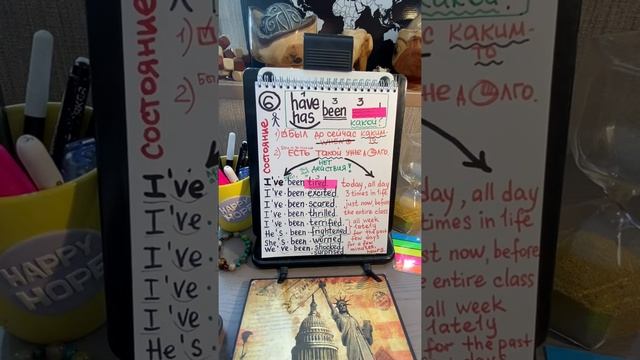 6
1 have 3 3
has been какой?
состояние
1) БЫЛ ДО СЕЙЧАС КАКИМ-ТО
2) ЕСТЬ ТАКОЙ УЖЕ ДОЛГО.
НЕТ
ДЕЙСТВИЯ!
I've been tired today, all day
I've been excited 3 times in life
I've been scared just now, before
I've been thrilled the entire class
I've been terrified all week
lately
He's been frightened for the past
She's been worried few days
We've been shocked for a few
surprised minutes
hours.
HAPPY
HOPE
какой?
КАКИМ-
ТО
состояние
1)
2)
I've
I've
I've
I've
I've
He's
, all day
times in life
st now, before
entire class
all week
lately
for the past